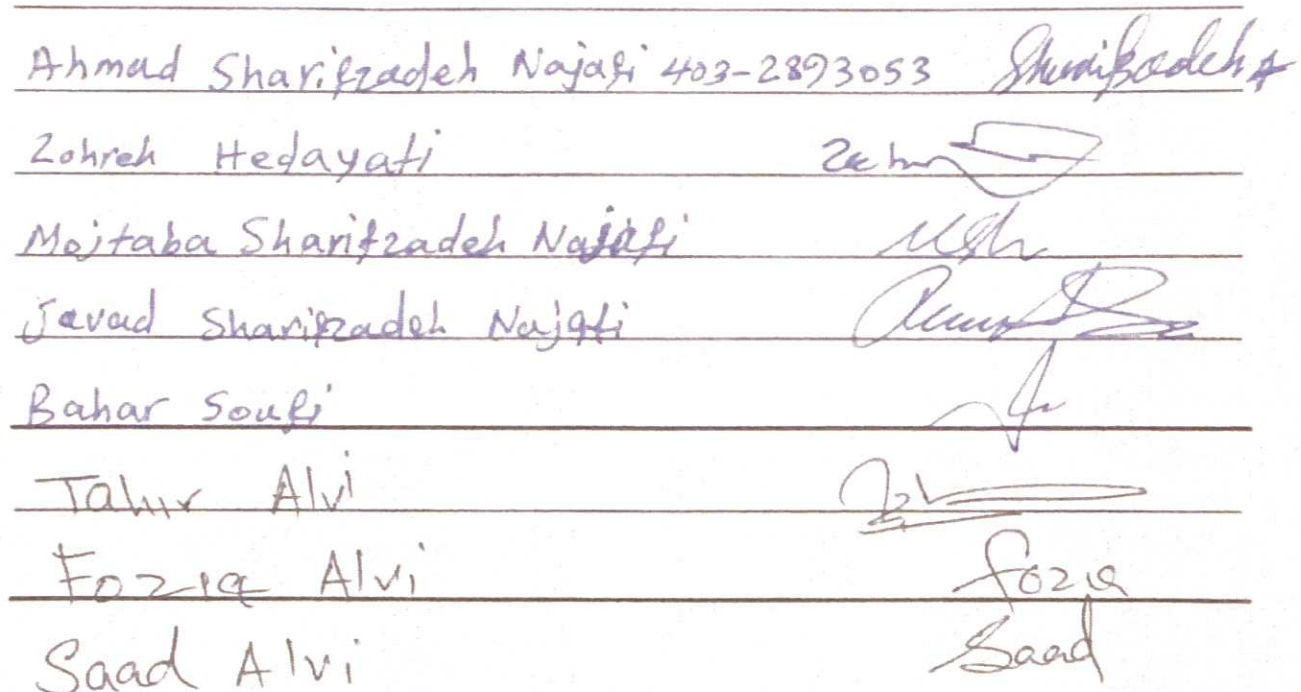 Ahmad Sharifzadeh Najafi 403-2893053 Sharifzadeh A
Zohreh Hedayati
Mojtaba Sharifzadeh Najafi MSh
Javad Sharifzadeh Najafi
Bahar Soufi
Tahir Alvi
Fozia Alvi fozia
Saad Alvi Saad